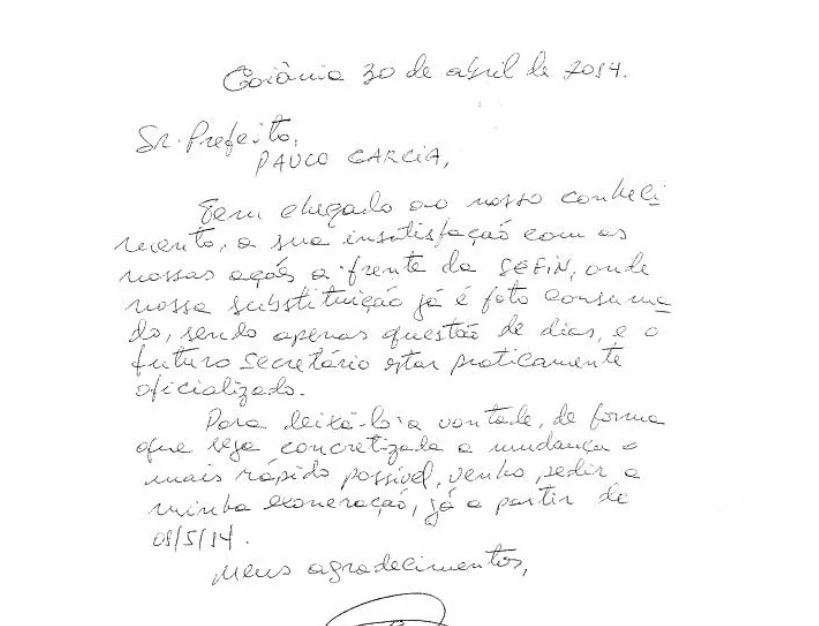 Goiânia 30 de abril de 2014.
Sr. Prefeito,
PAULO GARCIA,
Tem chegado ao nosso conheci
mento, a sua insatisfação com as
nossas ações a frente da SEFIN, onde
nossa substituição já é fato consuma
do, sendo apenas questão de dias, e o
futuro secretário estar praticamente
oficializado.
Para deixá-lo a vontade, de forma
que seja concretizada a mudança o
mais rápido possível, venho pedir a
minha exoneração, já a partir de
/5/14.
Meus agradecimentos,